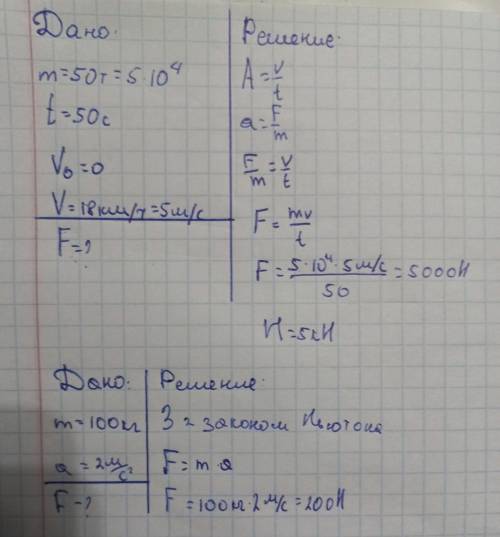 Дано:
m=50т=5·10⁴
t=50с
V₀=0
V=18км/ч=5м/с
F=?
Решение:
A=v/t
a=F/m
F/m=v/t
F=mv/t
F=5·10⁴·5м/с/50=5000Н
Н=5кН
Дано:
m=100кг
a=2м/с²
F-?
Решение:
З 2 законом Ньютона
F=m·a
F=100кг·2м/с=200Н